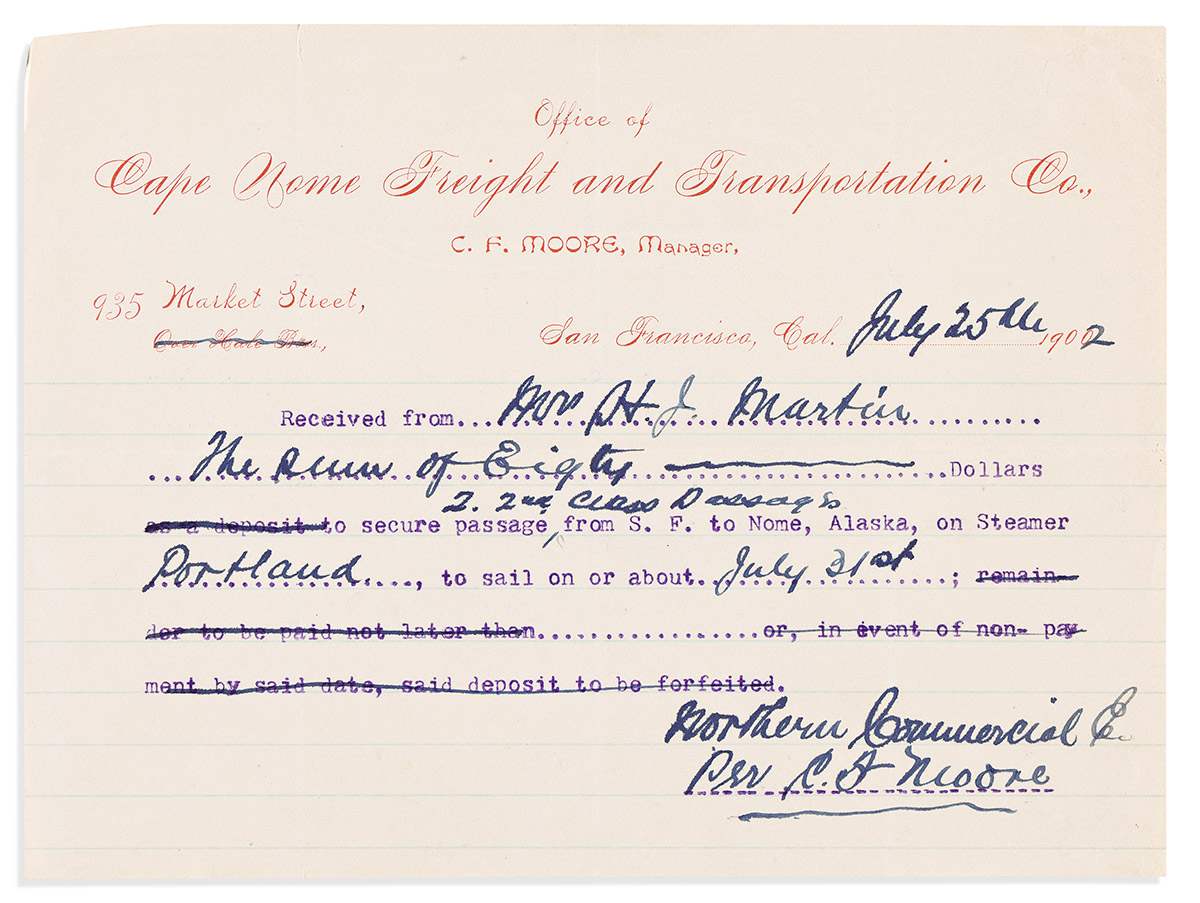 Office of
Cape Nome Freight and Transportation Co.,
C. F. MOORE, Manager,
935 Market Street,
Over Hale Bros.,
San Francisco, Cal. July 25th 1902
Received from... Mrs H. J. Martin ............
... The sum of Eigty ...Dollars
2. 2nd Class Passages
as a deposit to secure passage from S. F. to Nome, Alaska, on Steamer
Portland...., to sail on or about.. July 31st ...; remain-
der to be paid not later than....................or, in event of non- pay
ment by said date, said deposit to be forfeited.
Northern Commercial
Per C. F Moore